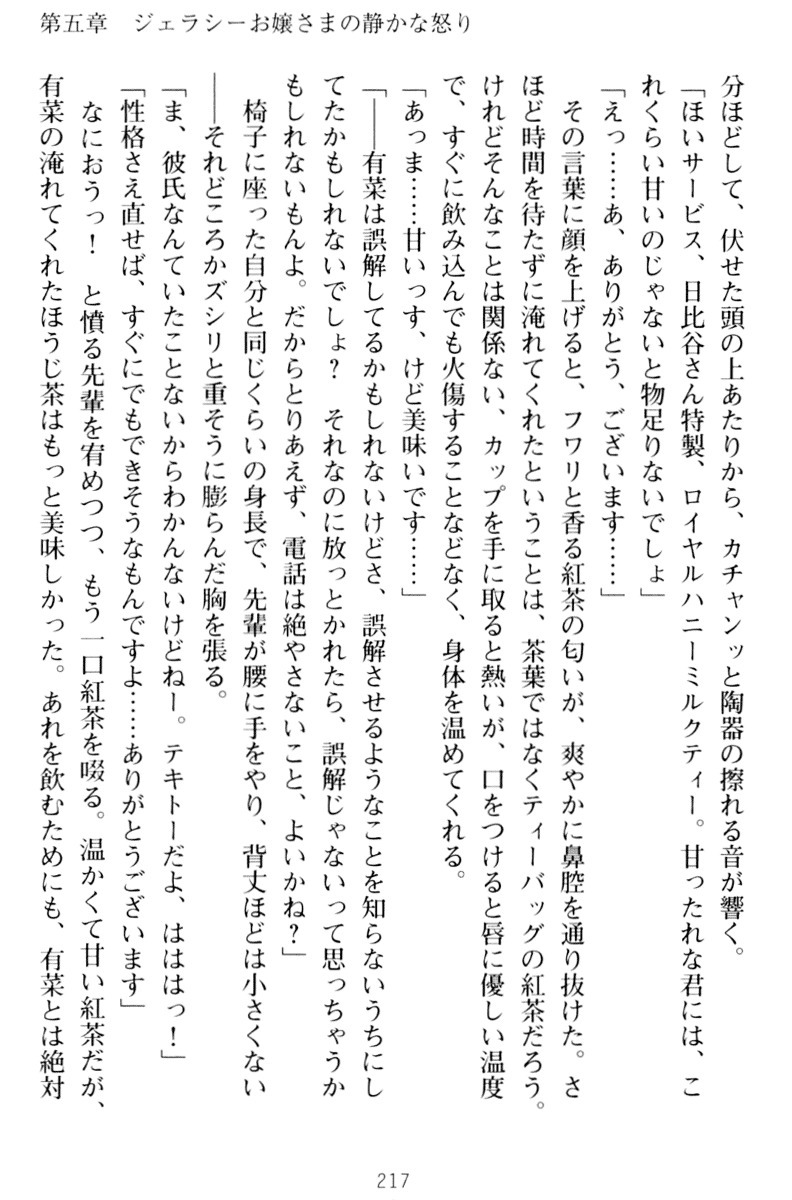 第五章　ジェラシーお嬢さまの静かな怒り
分ほどして、伏せた頭の上あたりから、カチャンッと陶器の擦れる音が響く。
「ほいサービス、日比谷さん特製、ロイヤルハニーミルクティー。甘ったれな君には、こ
れくらい甘いのじゃないと物足りないでしょ」
「えっ……あ、ありがとう、ございます……」
　その言葉に顔を上げると、フワリと香る紅茶の匂いが、爽やかに鼻腔を通り抜けた。さ
ほど時間を待たずに淹れてくれたということは、茶葉ではなくティーバッグの紅茶だろう。
けれどそんなことは関係ない、カップを手に取ると熱いが、口をつけると唇に優しい温度
で、すぐに飲み込んでも火傷することなどなく、身体を温めてくれる。
「あっま……甘いっす、けど美味いです……」
「――有菜は誤解してるかもしれないけどさ、誤解させるようなことを知らないうちにし
てたかもしれないでしょ？　それなのに放っとかれたら、誤解じゃないって思っちゃうか
もしれないもんよ。だからとりあえず、電話は絶やさないこと、よいかね？」
　椅子に座った自分と同じくらいの身長で、先輩が腰に手をやり、背丈ほどは小さくない
――それどころかズシリと重そうに膨らんだ胸を張る。
「ま、彼氏なんていたことないからわかんないけどねー。テキトーだよ、はははっ！」
「性格さえ直せば、すぐにでもできそうなもんですよ……ありがとうございます」
　なにおうっ！　と憤る先輩を宥めつつ、もう一口紅茶を啜る。温かくて甘い紅茶だが、
有菜の淹れてくれたほうじ茶はもっと美味しかった。あれを飲むためにも、有菜とは絶対
217